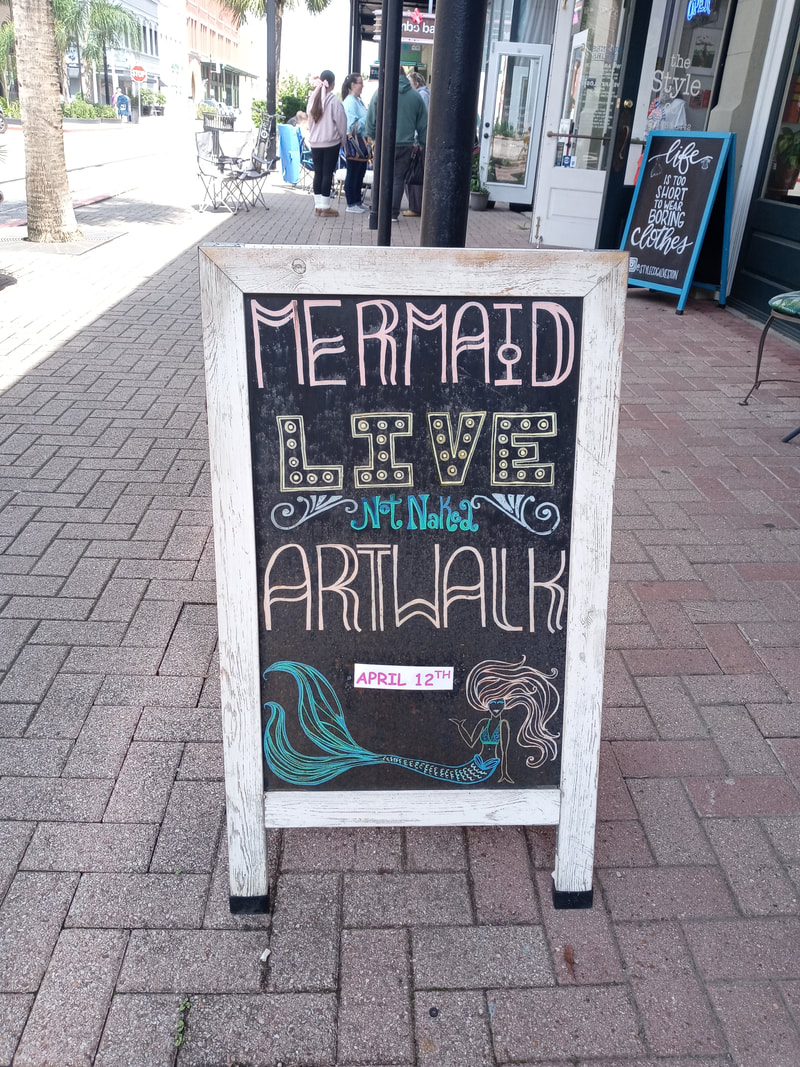 MERMAID
LIVE
Not Naked
ARTWALK
APRIL 12TH
life
IS TOO
SHORT
TO WEAR
BORING
clothes
the
Style
OPEN